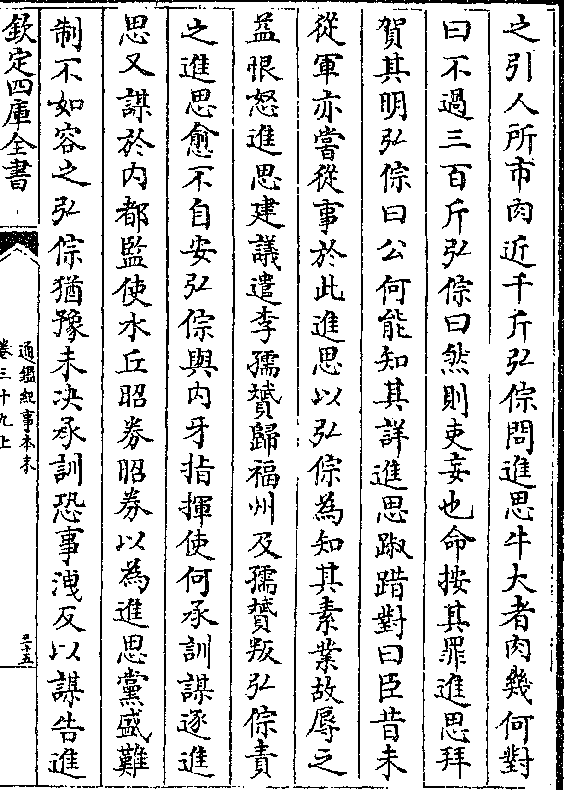 之引人所市肉近千斤弘倧問進思牛大者肉幾何對
曰不過三百斤弘倧曰然則吏妄也命按其罪進思拜
賀其明弘倧曰公何能知其詳進思踧踖對曰臣昔未
從軍亦嘗從事於此進思以弘倧為知其素業故辱之
益恨怒進思建議遣李孺贇歸福州及孺贇叛弘倧責
之進思愈不自安弘倧與内牙指揮使何承訓謀逐進
思又謀於内都監使水丘昭券昭券以為進思黨盛難
制不如容之弘倧猶豫未決承訓恐事洩反以謀告進
欽定四庫全書
通鑑紀事本末
卷三十九上
三十五